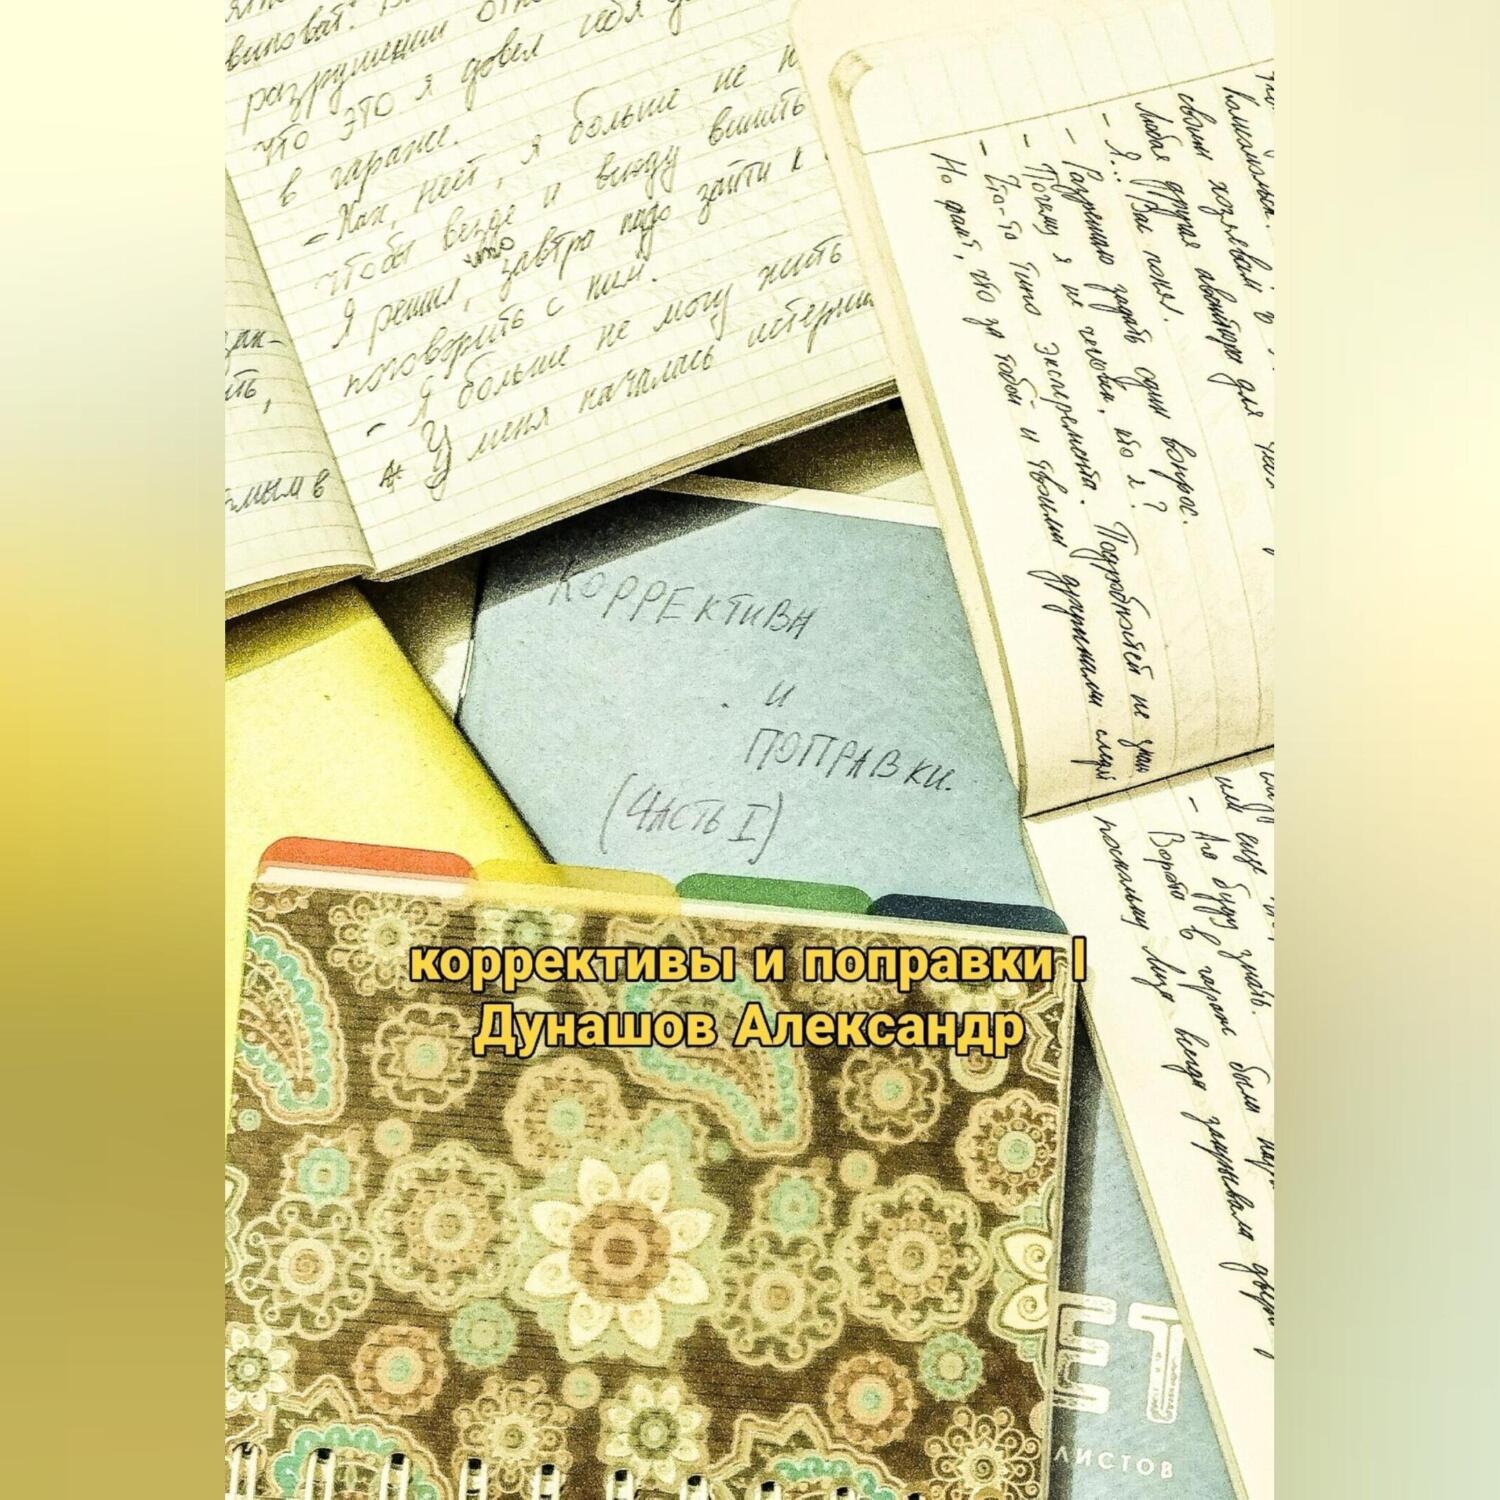 виноват?
разрушении
что это я довёл себя
в гараже.
– Как, нет, я больше не
чтобы везде и всюду винить
Я решил, что завтра надо зайти к
поговорить с ним.
– Я больше не могу жить
У меня началась истерика
зак-
ть,
мым в
своим хозяевам
Любая другая
– Я... Вас понял.
– Разрешаю задать один вопрос.
– Почему я не человек, кто я?
– Что-то типо эксперемента. Подробностей не знаю
Но факт, что за тобой и твоими дружками следи
или ещё
– Ано буду знать.
Ворота в гараже были
поскольку Лица всегда закрывала двери
КОРРЕКТИВЫ
И
ПОПРАВКИ.
(ЧАСТЬ I)
коррективы и поправки I
Дунашов Александр
ЕТ
ЛИСТОВ